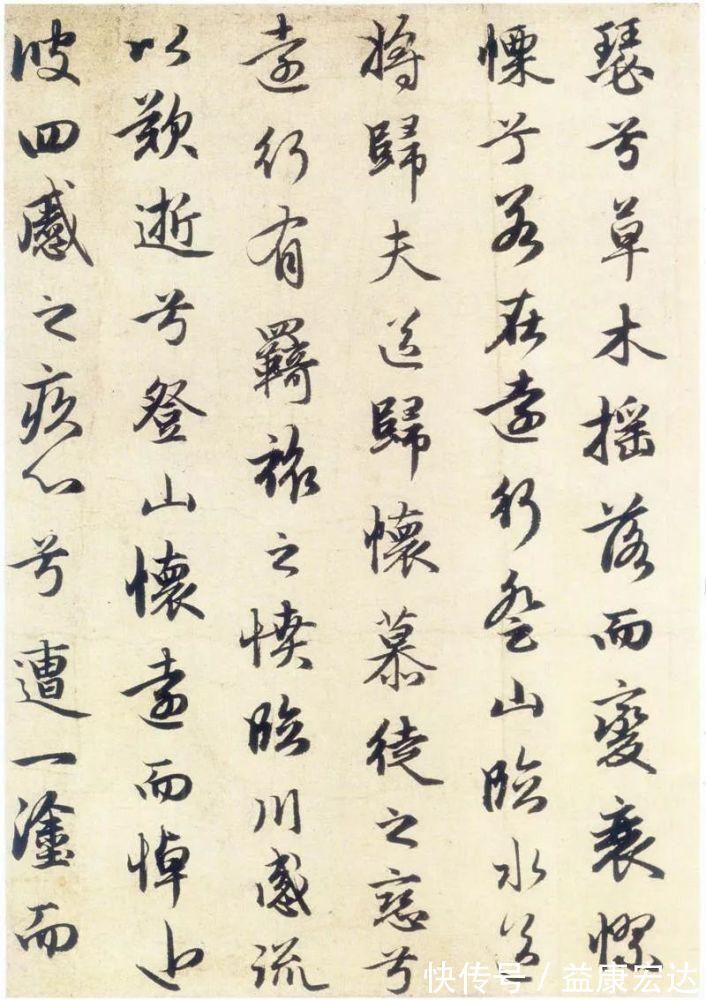 瑟兮草木摇落而變衰憀
慄兮若在遠行登山臨水送
將歸夫送歸懷慕徒之戀兮
遠行有羈旅之憤臨川感流
以歎逝兮登山懷遠而悼近
彼四慼之疚心兮遭一塗而
快传号/益康宏达